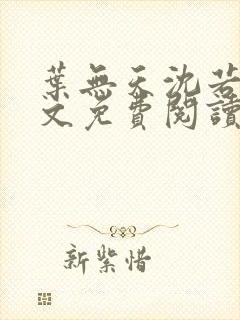 葉無天沈若
文免費閱讀
新紫惜